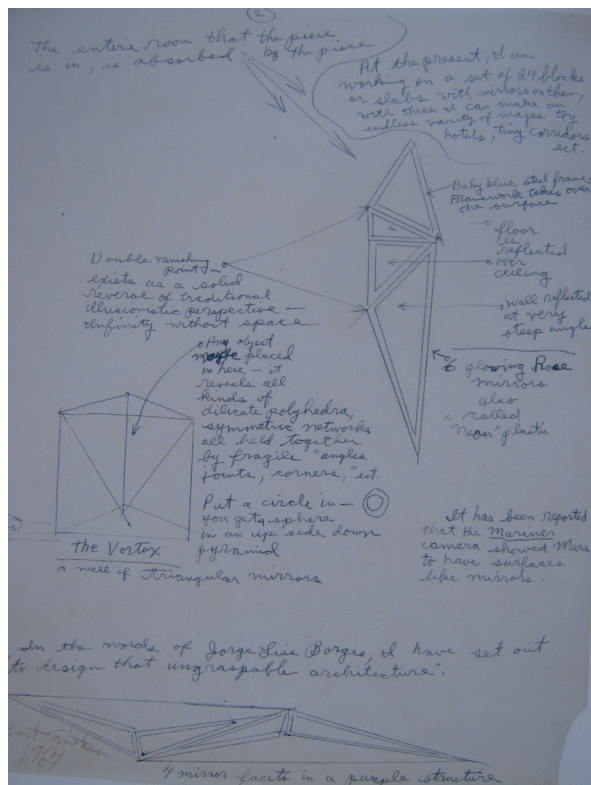 2
The entire room that the piece
is in, is absorbed by the piece
At the present, I am
working on a set of 24 blocks
or slabs with mirrors on them,
with these I can make an
endless variety of mazes toy
hotels, tiny corridors
ect.
Baby blue steel frame-
Framework takes over
the surface
floor
is
reflected
over
ceiling
wall reflected
at very
steep angle
6 glowing Rose
mirrors
also
called
"Neon" plastic
Double vanishing
point –
exists as a solid
reverse of traditional
illusionistic perspective —
infinity without space
Any object
maybe placed
in here – it
reveals all
kinds of
delicate polyhedra,
symmetric networks
all held together
by fragile "angles
joints, corners," ect.
Put a circle in –
you get a sphere
in an up side down
pyramid
The Vortex
a well of triangular mirrors
It has been reported
that the Mariner
camera showed Mars
to have surfaces
like mirrors.
In the words of Jorge Luis Borges, I have set out
"to design that ungraspable architecture".
4 mirror facets in a purple structure